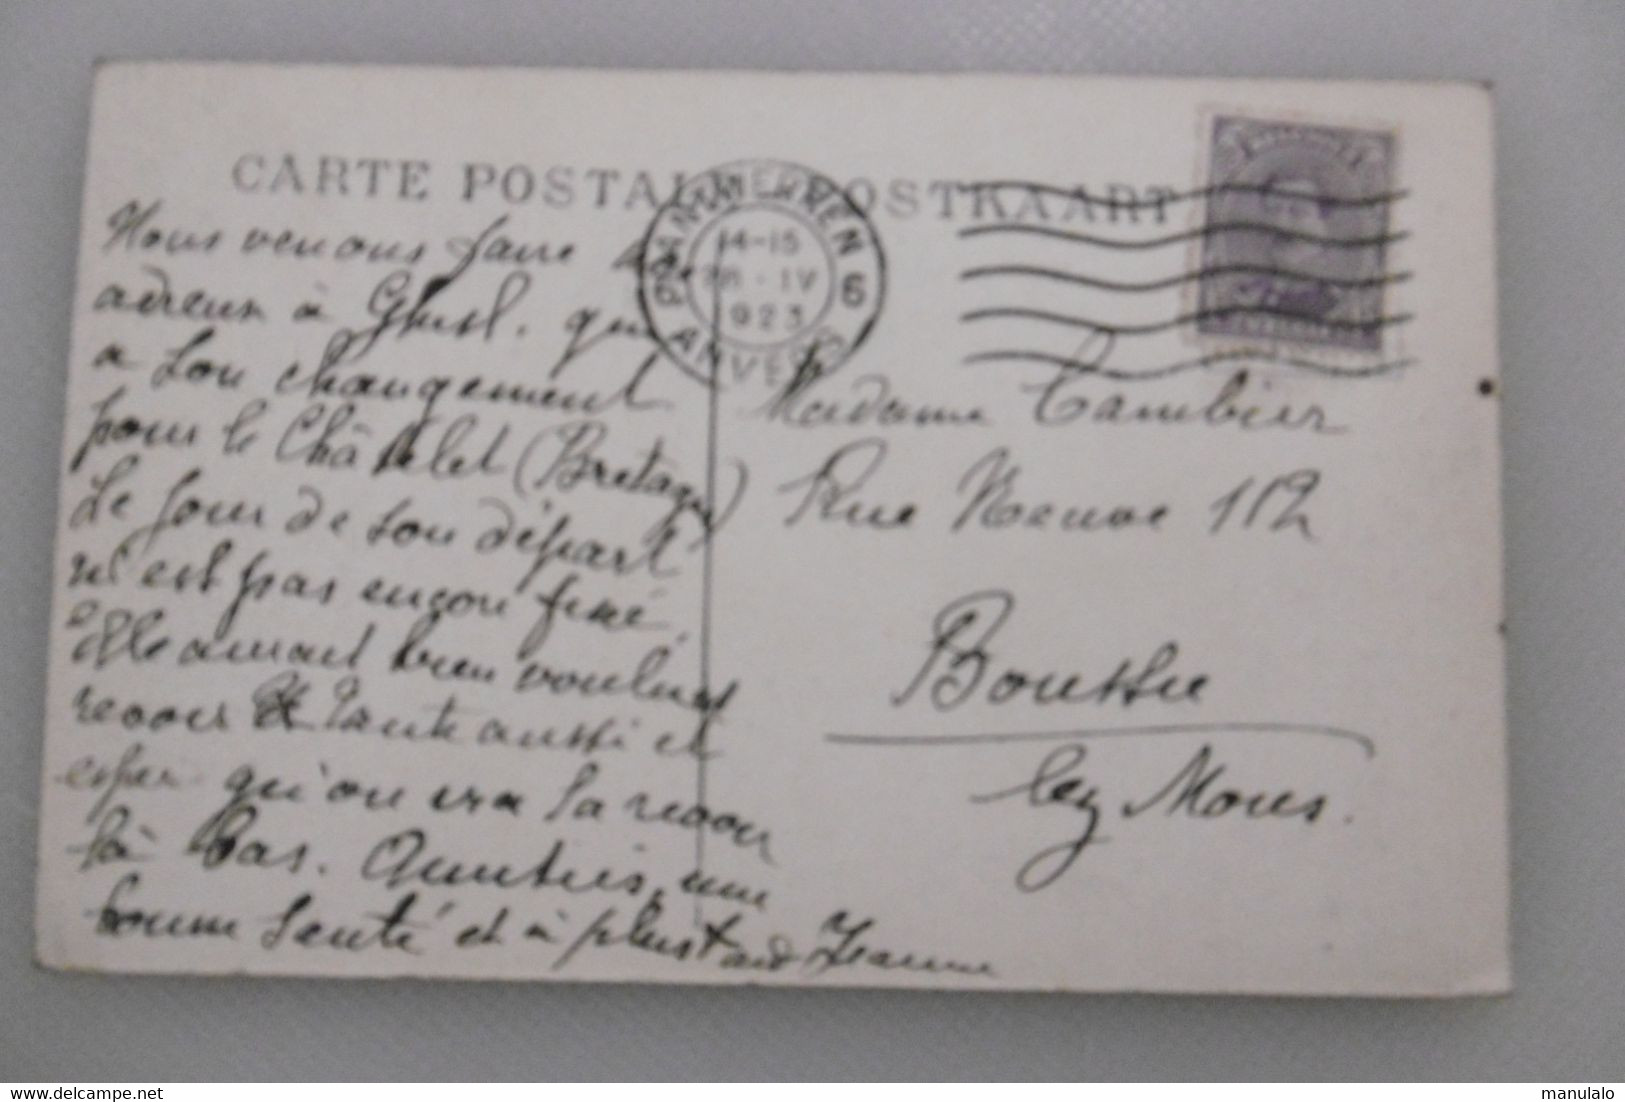 CARTE POSTALE POSTKAART
ANTWERPEN 6
14-15
28 · IV
1923
ANVERS
Nous venons faire nos
adieux à Ghisl. qui
a son changement
pour le Châtelet (Bretagne)
Le jour de son départ
n'est pas encore fixé.
Elle aurait bien voulu
revoir Tante aussi et
espère qu'on ira la revoir
là bas. Amitiés, une
bonne santé et à plus tard Jeanne
Madame Cambier
Rue Neuve 112
Boussu
lez Mons.
delcampe.net
manulalo